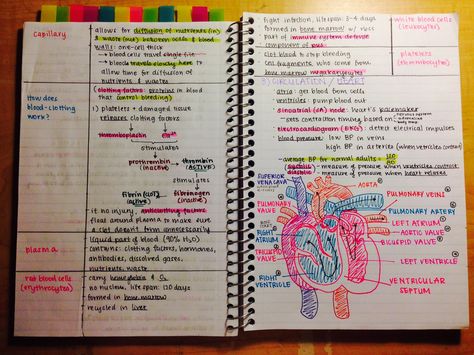 capillary
allows for diffusion of nutrients (in)
& waste (out) between cells & blood
walls: one-cell thick
→ blood cells travel single file
→ blood travels slowly here to
allow time for diffusion of
nutrients & wastes
How does
blood-clotting
work?
clotting factors: proteins in blood
that control bleeding
1) platelets + damaged tissue
releases clotting factors
thromboplastin
stimulates
prothrombin → thrombin
(inactive) (ACTIVE)
stimulates
fibrin (clot) ← fibrinogen
(active) (inactive)
if no injury, anticlotting factors
float around plasma to make sure
a clot doesn't form unnecessarily
plasma
liquid part of blood (90% H₂O)
contains: clotting factors, hormones,
antibodies, dissolved gases,
nutrients, waste
red blood cells
(erythrocytes)
carry hemoglobin & O₂
no nucleus, lifespan: 120 days
formed in bone marrow
recycled in liver
fight infection, lifespan: 3-4 days
formed in bone marrow w/ nuclei
part of immune system defense
component of pus
white blood cells
(leukocytes)
clot blood to stop bleeding
cell fragments who come from
bone marrow megakaryocytes
platelets
(thrombocytes)
CIRCULATION / HEART
atria: get blood from cells
ventricles: pump blood out
sinoatrial (SA) node: heart's pacemaker
→ sets contraction timing based on
electrocardiogram (EKG): detect electrical impulses
blood pressure: low BP in veins
high BP in arteries (when ventricles contract)
average BP for normal adults = 120
80
systolic → measure of pressure when ventricles contract
diastolic → measure of pressure when heart relaxes
SUPERIOR
VENA CAVA
AORTA
PULMONARY VEINS
PULMONARY
VALVE
PULMONARY ARTERY
LEFT ATRIUM
RIGHT
ATRIUM
AORTIC VALVE
BICUSPID VALVE
VALVE
LEFT VENTRICLE
RIGHT
VENTRICLE
VENTRICULAR
SEPTUM